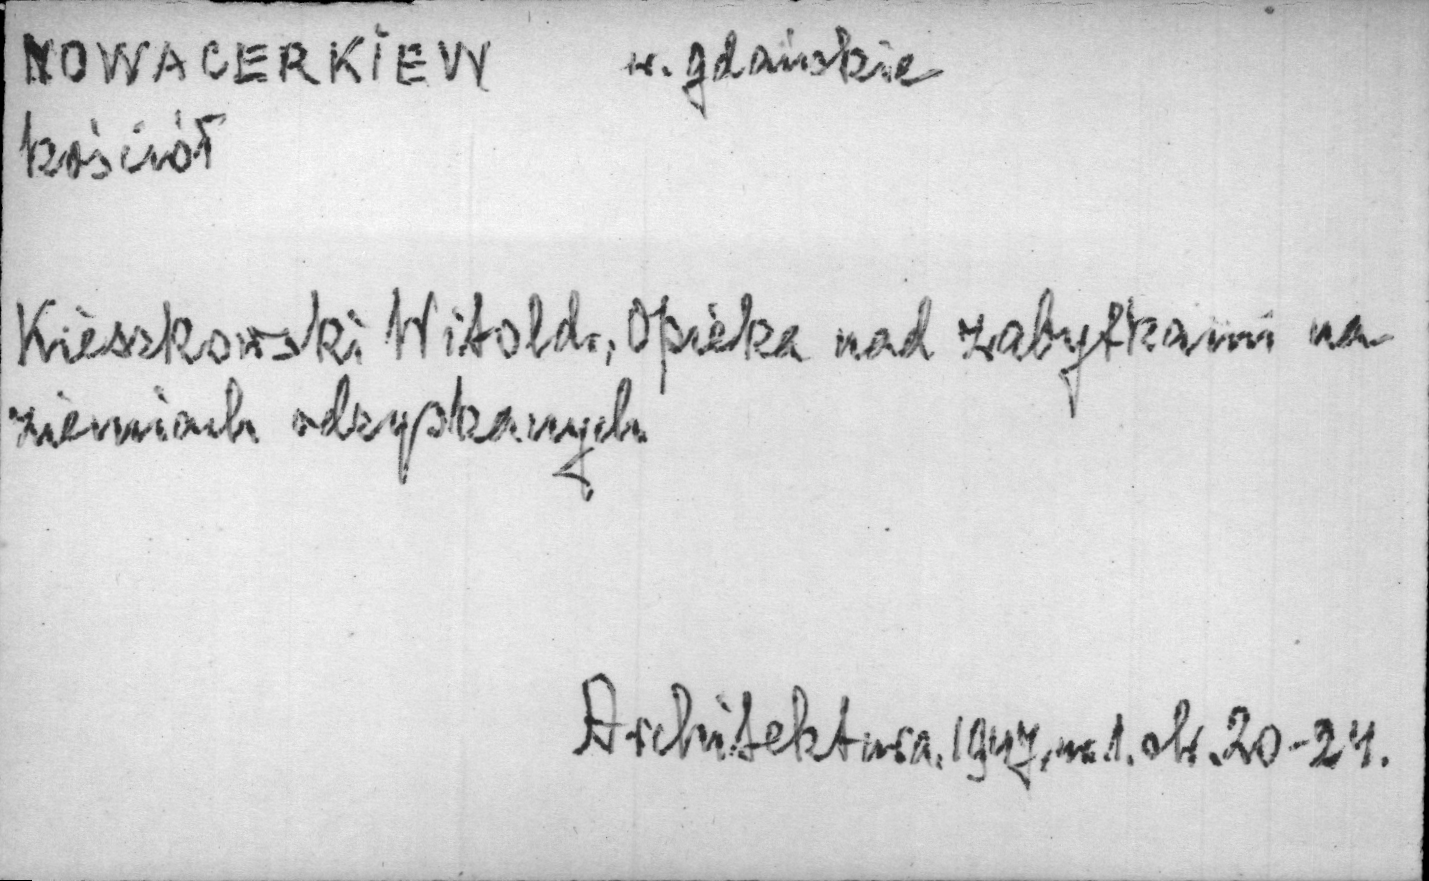 NOWACERKIEW w. gdańskie
kościół
Kieszkowski Witold, Opieka nad zabytkami na
ziemiach odzyskanych
Architektura, 1947, nr 1. str. 20-24.